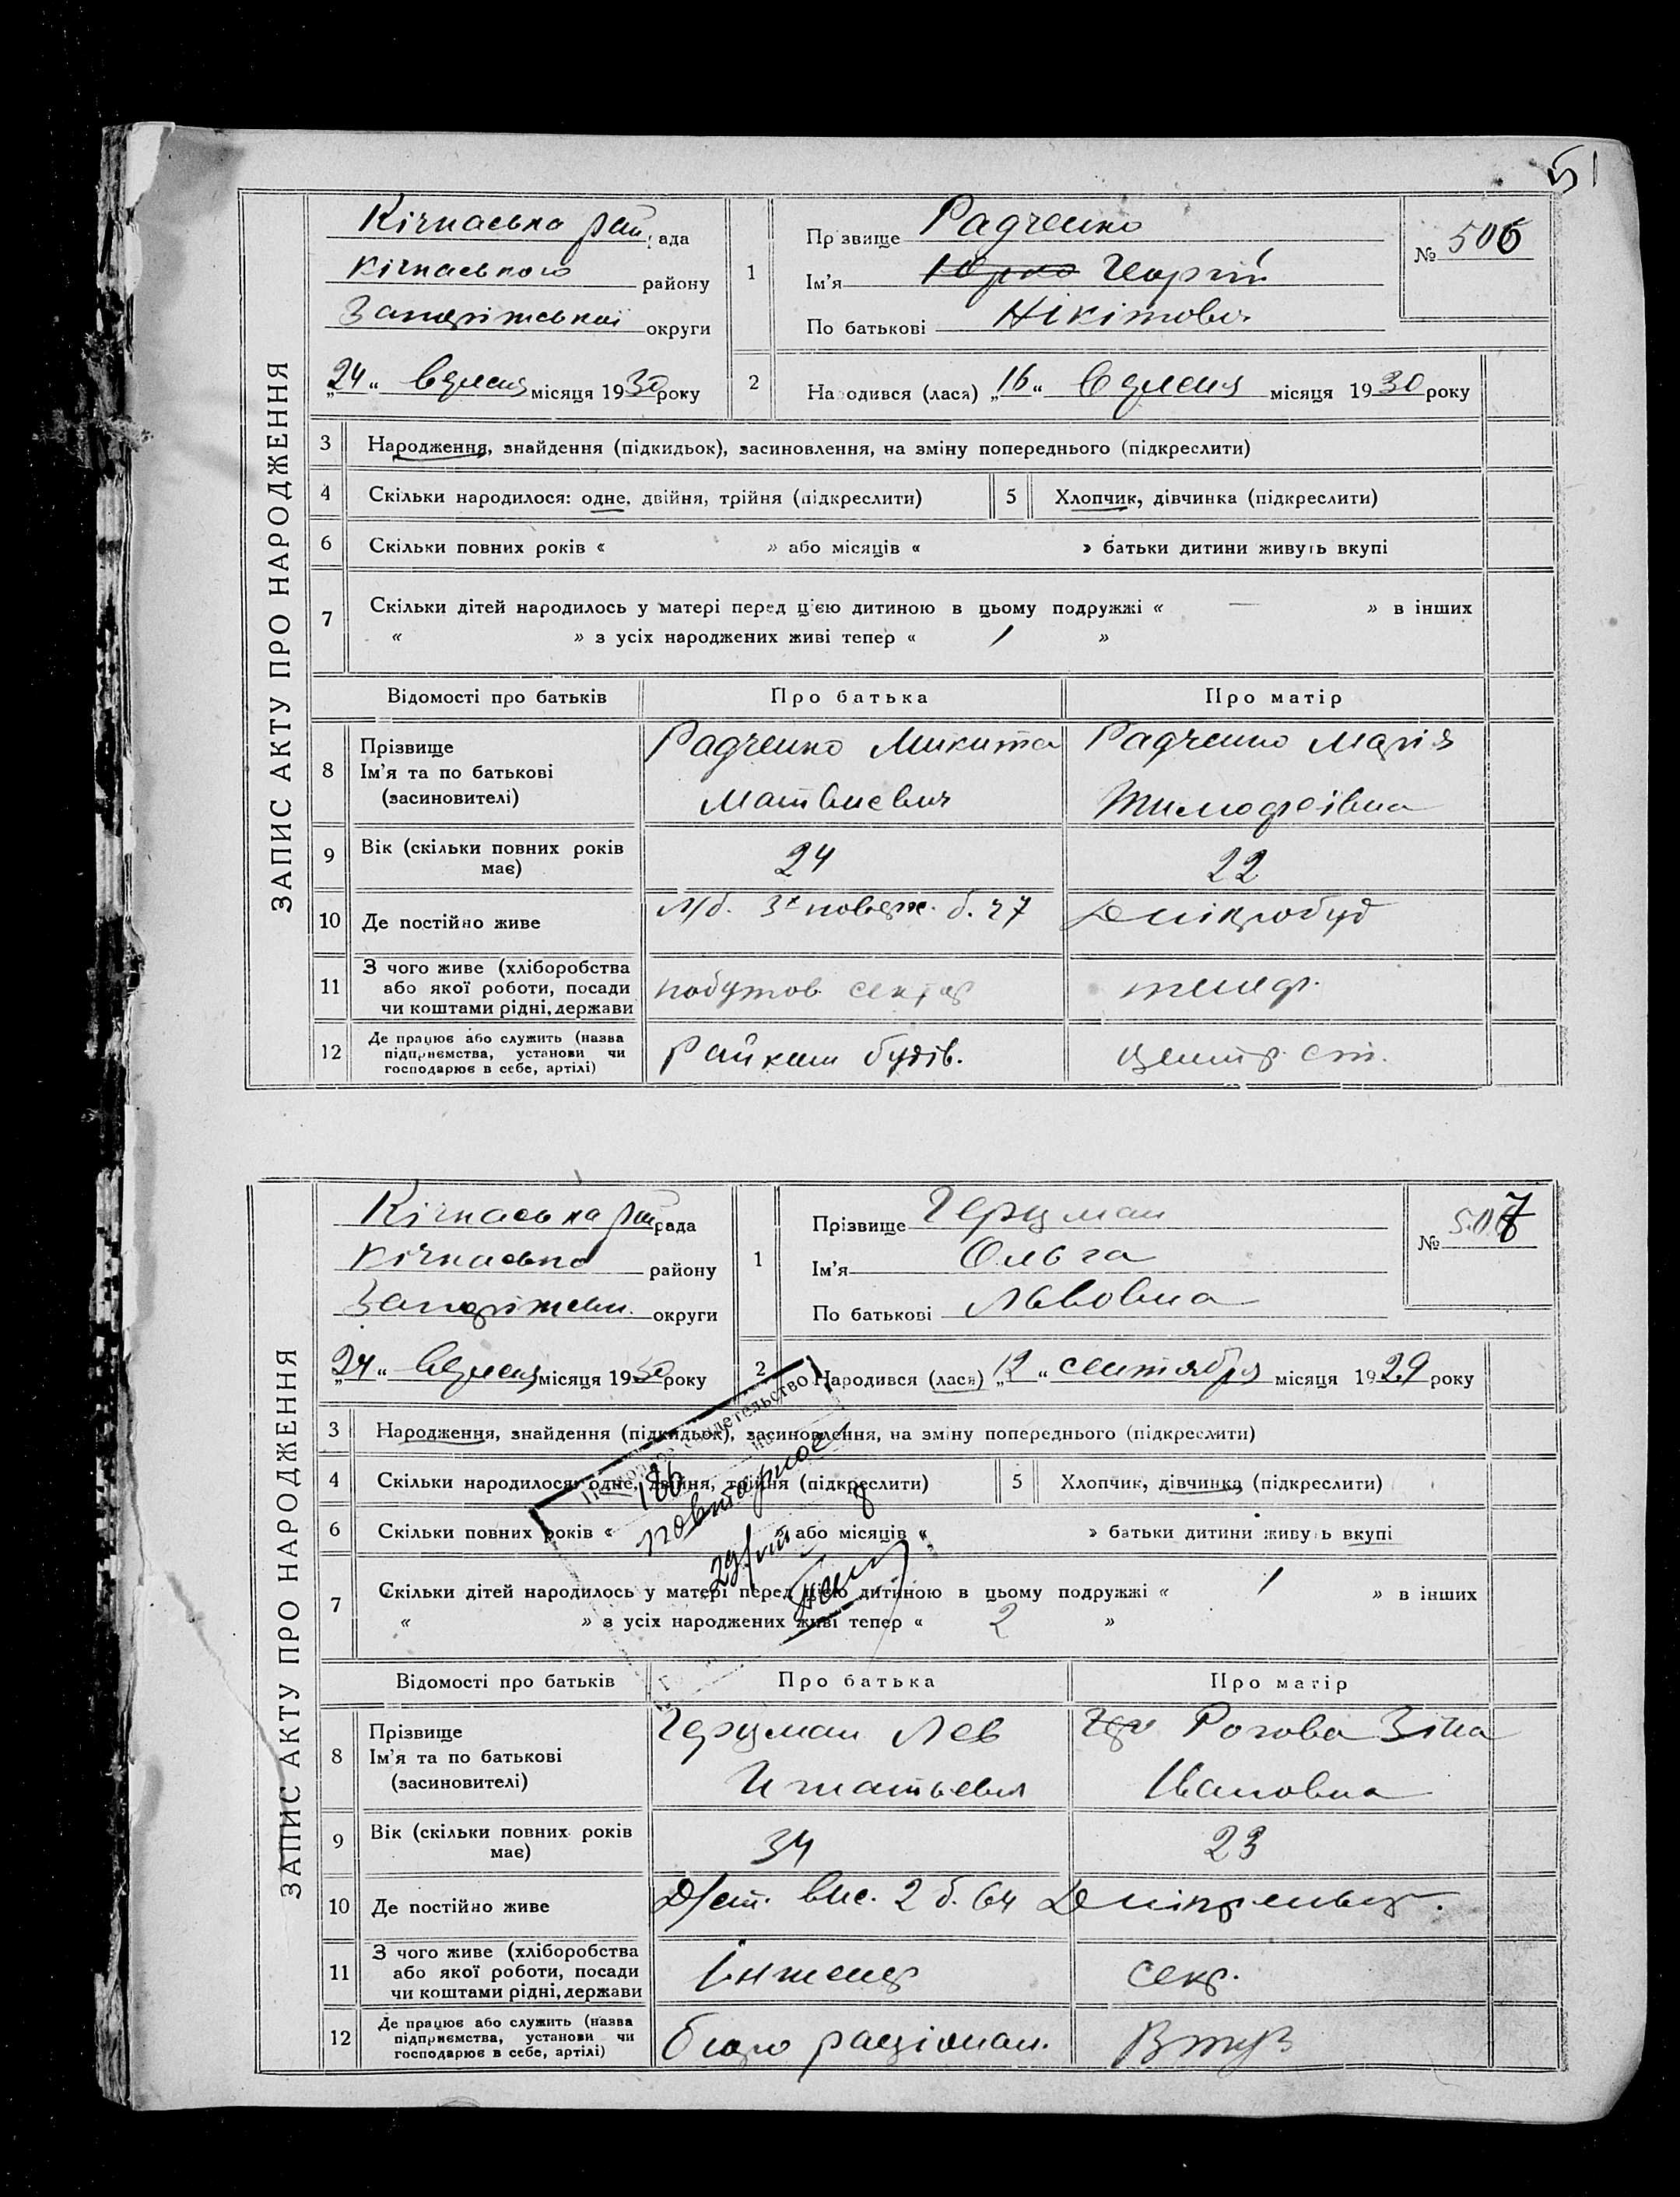 51
ЗАПИС АКТУ ПРО НАРОДЖЕННЯ
Кічкаська рай рада
Кічкаського району
Запоріжської округи
„24“ вересня місяця 1930 року
1
Прізвище Радченко
Ім'я Юрко Георгій
По батькові Нікітович
№ 506
2
Народився (лася) „16“ вересня місяця 1930 року
3 Народження, знайдення (підкидьок), засиновлення, на зміну попереднього (підкреслити)
4 Скільки народилося: одне, двійня, трійня (підкреслити) 5 Хлопчик, дівчинка (підкреслити)
6 Скільки повних років « » або місяців « » батьки дитини живуть вкупі
7 Скільки дітей народилось у матері перед цією дитиною в цьому подружжі « — » в інших
« » з усіх народжених живі тепер « 1 »
Відомості про батьків Про батька Про матір
8 Прізвище Ім'я та по батькові (засновителі)
Радченко Микита Матвиевич
Радченко Марія Тимофеївна
9 Вік (скільки повних років має) 24 22
10 Де постійно живе Л/б. 3х поверх. б. 27 Дніпробуд
11 З чого живе (хліборобства або якої роботи, посади чи коштами рідні, держави
побутов сектор
телеф.
12 Де працює або служить (назва підприємства, установи чи господарює в себе, артілі)
Райком будів.
центр. ст.
ЗАПИС АКТУ ПРО НАРОДЖЕННЯ
Кічкаська рай рада
Кічкаська району
Запоріжськ. округи
„24“ вересня місяця 1930 року
1
Прізвище Герцман
Ім'я Ольга
По батькові Львовна
№ 507
2
Народився (лася) „12“ сентября місяця 1929 року
3 Народження, знайдення (підкидьок), засиновлення, на зміну попереднього (підкреслити)
4 Скільки народилося: одне, двійня, трійня (підкреслити) 5 Хлопчик, дівчинка (підкреслити)
6 Скільки повних років « » або місяців « » батьки дитини живуть вкупі
свидетельство
186
повторное
7 Скільки дітей народилось у матері перед цією дитиною в цьому подружжі « 1 » в інших
« » з усіх народжених живі тепер « 2 »
Відомості про батьків Про батька Про матір
8 Прізвище Ім'я та по батькові (засиновителі)
Герцман Лев Игнатьевич
Рогова Зіна Івановна
9 Вік (скільки повних років має) 34 23
10 Де постійно живе Д/ст. вис. 2 б. 64
11 З чого живе (хліборобства або якої роботи, посади чи коштами рідні, держави
Інженер
секр.
12 Де працює або служить (назва підприємства, установи чи господарює в себе, артілі)
бюро раціонал.
Втуз